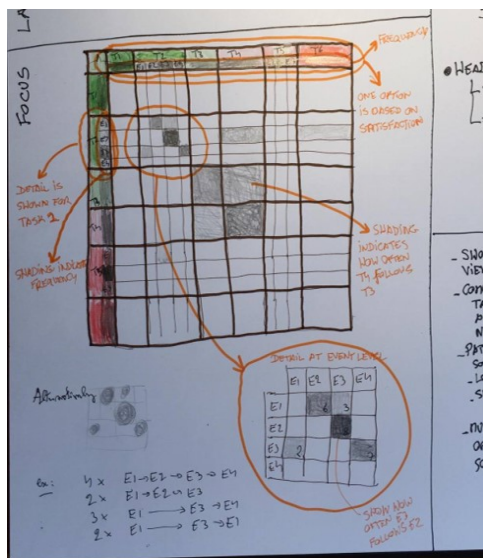 FOCUS
LA
T1 T2 T3 T4 T5 T6
FREQUENCY
ONE OPTION
IS BASED ON
SATISFACTION
DETAIL IS
SHOWN FOR
TASK 2
SHADING INDICATES
FREQUENCY
SHADING
INDICATES
HOW OFTEN
T4 FOLLOWS
T3
DETAIL AT EVENT LEVEL
E1 E2 E3 E4
E1 6 3
E2
E3 2
E4
SHOW HOW
OFTEN E3
FOLLOWS E2
Alternatively
ex:
4x E1→E2→E3→E4
2x E1→E2→E3
3x E1→E3→E4
2x E1→E3→E1
HEAD